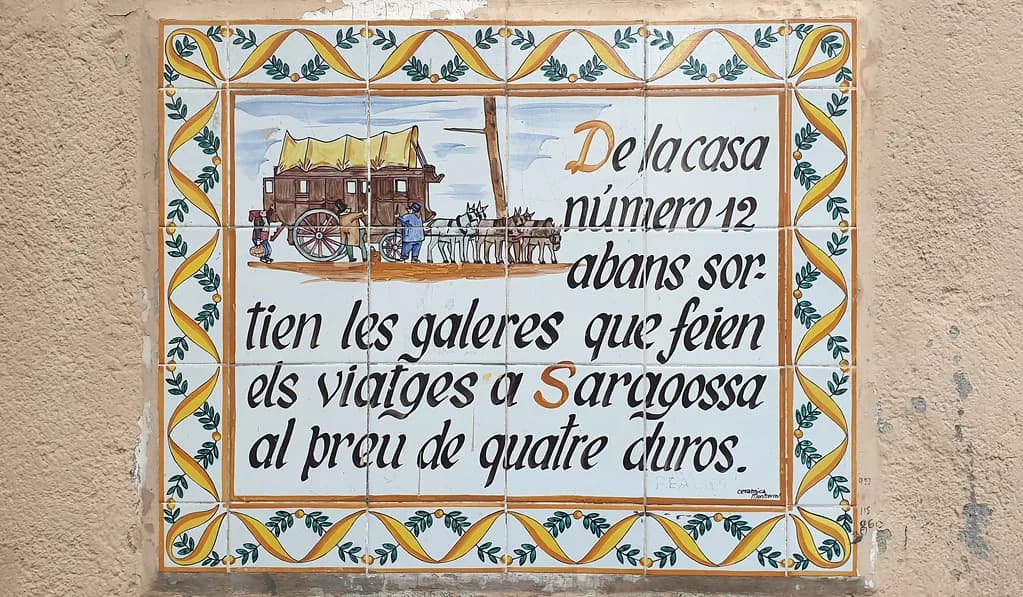 De la casa
número 12
abans sor-
tien les galeres que feien
els viatges a Saragossa
al preu de quatre duros.
ceramica